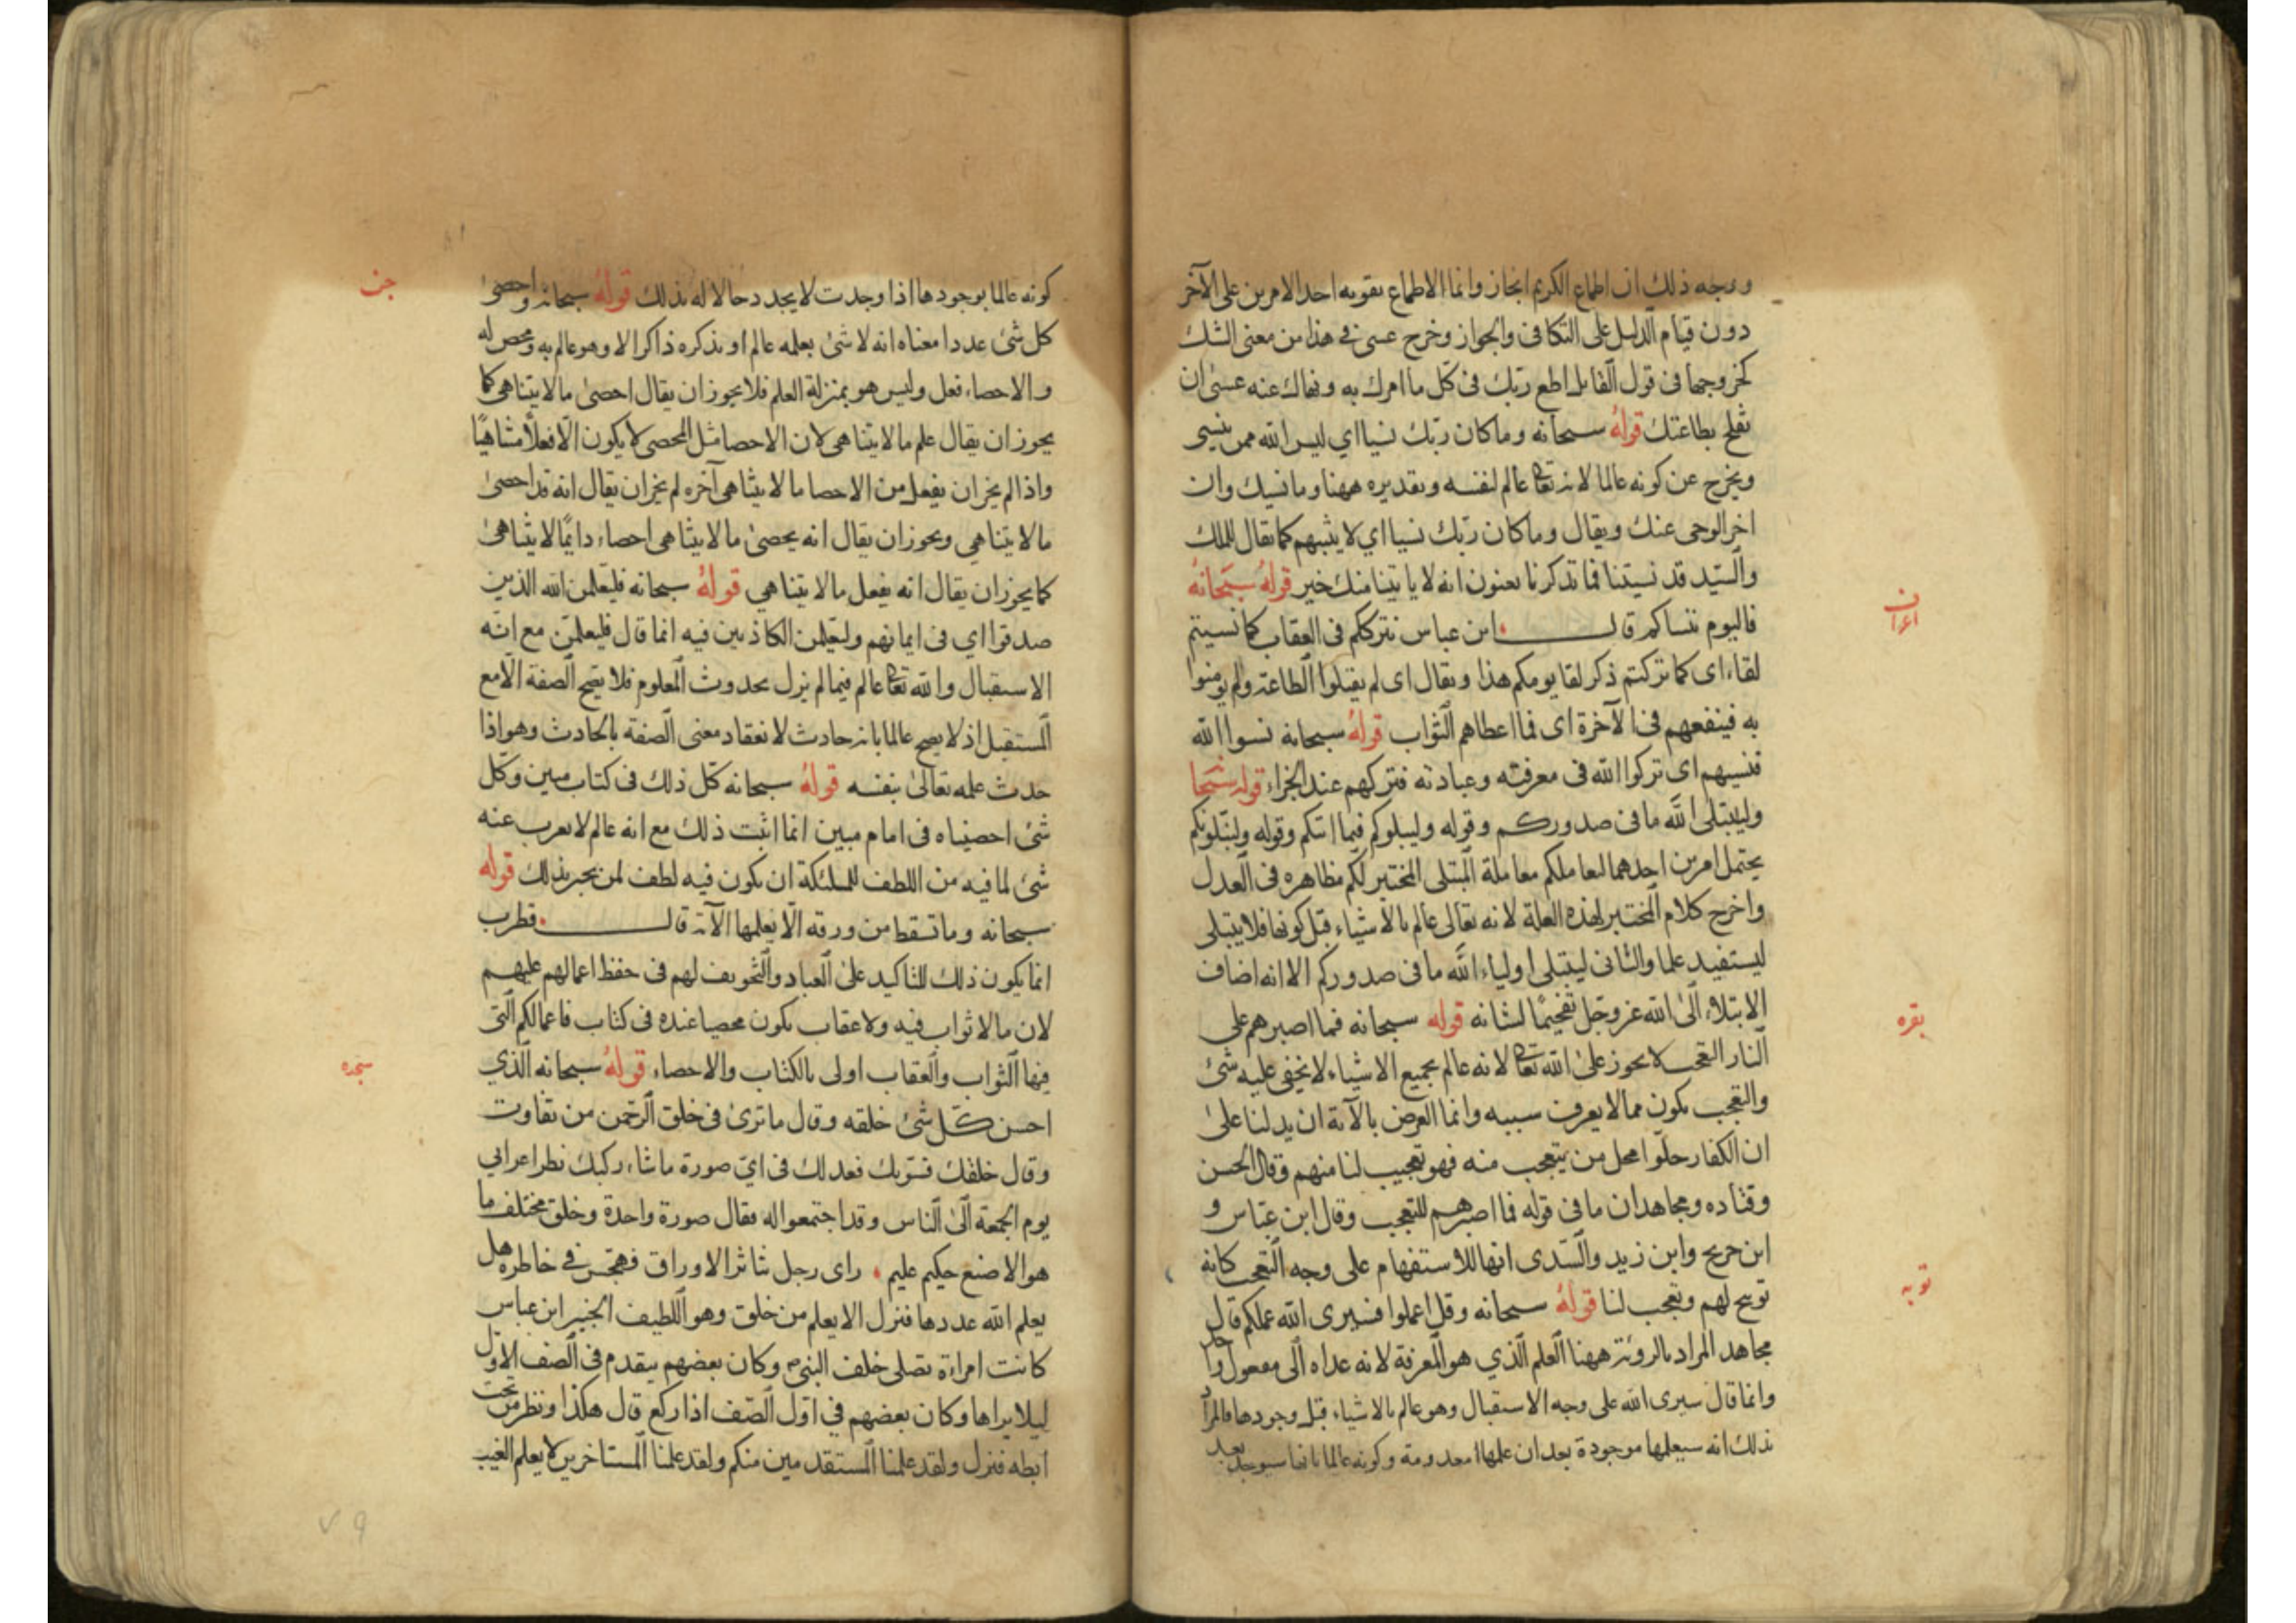 ووجه ذلك ان اطماع الكريم انجاز وانما الاطماع بقوبه احد الامرين على الآخر
دون قيام الدليل على التكافى والجواز وخرج عسى فى هذا من معنى الشك
كخروجها فى قول القايل اطع ربك فى كل ما امرك به ونهاك عنه عسى ان
تفلح بطاعتك قوله سبحانه وما كان ربك نسيا اي ليس الله ممن ينسى
ويخرج عن كونه عالما لانه تعالى عالم لنفسه وتقديره ههنا وما نسيك وان
اخر الوحى عنك ويقال وما كان ربك نسيا اي لا يثيبهم كما يقال للملك
والسيد قد نسيتنا فما تذكرنا يعنون انه لا ياتينا منك خير قوله سبحانه
اعراف
فاليوم ننساكم قال ابن عباس نترككم فى العقاب كما نسيتم
لقاء اى كما تركتم ذكر لقا يومكم هذا ويقال اى لم يقبلوا الطاعة ولم يؤمنوا
به فينفعهم فى الآخرة اى فما اعطاهم الثواب قوله سبحانه نسوا الله
فنسيهم اى تركوا الله فى معرفته وعبادته فتركهم عند الجزاء قوله سبحا
وليبتلى الله ما فى صدوركم وقوله وليبلوكم فيما اتيكم وقوله ولنبلونكم
يحتمل امرين احدهما ليعاملكم معاملة المبتلى المختبر لكم مظاهره فى العدل
واخرج كلام المختبر لهذه العلة لانه تعالى عالم بالاشياء قبل كونها فلا يبتلى
ليستفيد علما والثانى ليبتلى اولياء الله ما فى صدوركم الا انه اضاف
الابتلاء الى الله عز وجل تفخيما لشانه قوله سبحانه فما اصبرهم على
بقره
النار التعجب لا يجوز على الله تعالى لانه عالم بجميع الاشياء لا يخفى عليه شئ
والتعجب يكون مما لا يعرف سببه وانما الغرض بالآية ان يدلنا على
ان الكفار حلوا محل من يتعجب منه فهو تعجيب لنا منهم وقال الحسن
وقتاده ومجاهد ان ما فى قوله فما اصبرهم للتعجب وقال ابن عباس و
ابن جريح وابن زيد والسدى انها للاستفهام على وجه التعجب كانه
توبيح لهم وتعجب لنا قوله سبحانه وقل اعملوا فسيرى الله عملكم قال
توبه
مجاهد المراد بالروية ههنا العلم الذي هو المعرفة لانه عداه الى مفعول واحد
وانما قال سيرى الله على وجه الاستقبال وهو عالم بالاشياء قبل وجودها فالمراد
بذلك انه سيعلمها موجودة بعد ان علمها معدومة وكونه عالما بانها سيوجد بعد
كونه عالما بوجودها اذا وجدت لا يجدد حالا له بذلك قوله سبحانه واحصى
جن
كل شئ عددا معناه انه لا شئ يعلمه عالم او يذكره ذاكر الا وهو عالم به ومحص له
والاحصاء فعل وليس هو بمنزلة العلم فلا يجوز ان يقال احصى ما لا يتناهى كما
يجوز ان يقال علم ما لا يتناهى لان الاحصا مثل المحصى لا يكون الا فعلا متناهيا
واذا لم يجز ان يفعل من الاحصا ما لا يتناهى آخره لم يجز ان يقال انه قد احصى
ما لا يتناهي ويجوز ان يقال انه يحصى ما لا يتناهى احصاء دايما لا يتناهى
كما يجوز ان يقال انه يفعل ما لا يتناهي قوله سبحانه فليعلمن الله الذين
صدقوا اي فى ايمانهم وليعلمن الكاذبين فيه انما قال فليعلمن مع انه
الاستقبال والله تعالى عالم فيما لم يزل بحدوث المعلوم فلا تصح الصفة الا مع
المستقبل اذ لا يصح عالما بانه حادث لانعقاد معنى الصفه بالحادث وهو اذا
حدث علمه تعالى بنفسه قوله سبحانه كل ذلك فى كتاب مبين وكل
شئ احصيناه فى امام مبين انما اثبت ذلك مع انه عالم لا يعزب عنه
شئ لما فيه من اللطف للملئكة ان يكون فيه لطف لمن يخبر بذلك قوله
سبحانه وما تسقط من ورقه الا يعلمها الآية قال قطرب
انما يكون ذلك للتاكيد على العباد والتخويف لهم فى حفظ اعمالهم عليهم
لان ما لا ثواب فيه ولا عقاب يكون محصيا عنده فى كتاب فاعمالكم التى
فيها الثواب والعقاب اولى بالكتاب والاحصاء قوله سبحانه الذي
سجده
احسن كل شئ خلقه وقال ما ترى فى خلق الرحمن من تفاوت
وقال خلقك فسويك فعدلك فى اي صورة ما شاء ركبك نظر اعرابي
يوم الجمعة الى الناس وقد اجتمعوا له فقال صورة واحدة وخلق مختلف ما
هو الا صنع حكيم عليم راى رجل تناثر الاوراق فهجس في خاطره هل
يعلم الله عددها فنزل الا يعلم من خلق وهو اللطيف الخبير ابن عباس
كانت امراءة تصلى خلف النبى وكان بعضهم يتقدم فى الصف الاول
ليلا يراها وكان بعضهم في اول الصف اذا ركع قال هكذا ونظر من تحت
ابطه فنزل ولقد علمنا المستقدمين منكم ولقد علمنا المستاخرين لا يعلم الغيب
٧٩